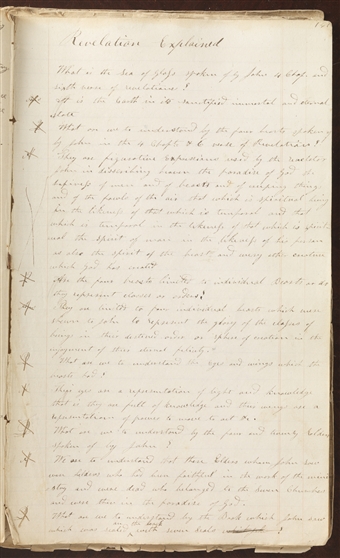 Revelation Explained
What is the Sea of Glass spoken of by John 4 Chap. and
sixth verse of revelations?
It is the Earth in its sanctified immortal and eternal
state
What are we to understand by the four beasts spoken of
by John in the 4 Chapt & 6 verse of Revelations?
They are figurative expressions used by the revelator
John in discribing heaven the paradise of God the
happiness of man and of beasts and of creeping things
and of the fowls of the air that which is spiritual being
in the likeness of that which is temporal and that
which is temporal in the likeness of that which is spiritual
the spirit of man in the likeness of his person
as also the spirit of the beast and every other creature
which God has created
Are the four beasts limited to individual Beasts or do
they represent classes or orders?
They are limited to four individual beasts which were
shown to John to represent the glory of the classes of
beings in their destined order or sphere of creation in the
enjoyment of their eternal felicity
What are we to understand the eyes and wings which the
beasts had?
Their eyes are a representation of light and knowledge
that is they are full of knowledge and their wings are a
representation of power to move to act &c.
What are we to understand by the four and twenty Elders
spoken of by John?
We are to understand that these Elders whom John saw
were Elders who had been faithful in the work of the
and were dead who belonged to the seven Churches
and were then in the paradise of God.
What are we to understand by the Book which John saw
which was sealed with seven seals